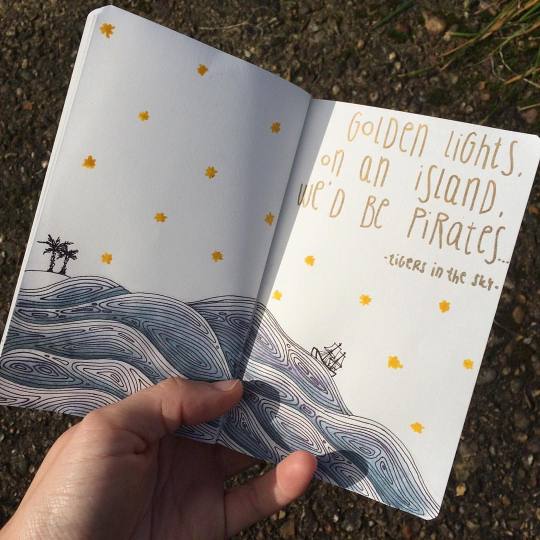 GOLDEN LiGHTS,
on an iSLAND,
WE'D BE PiRATES...
-tiGERS in the SKY-